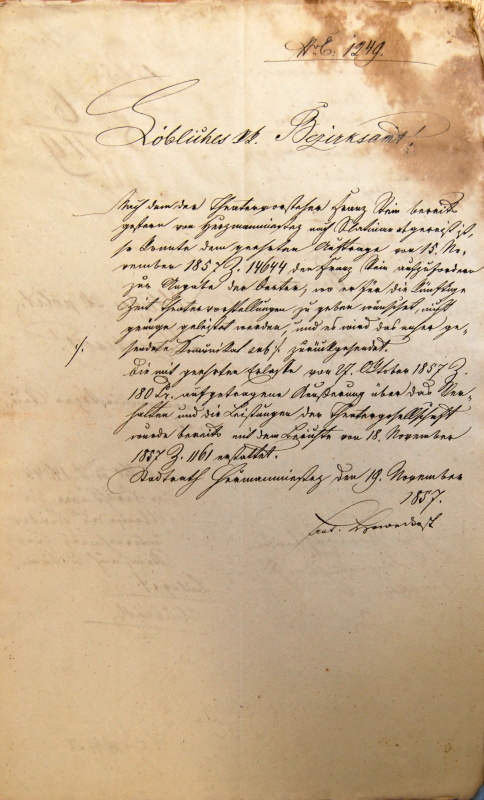 Nr. E. 1249.
Löbliches k. k. Bezirksamt!
Nach dem der Theatervorsteher Franz Stein bereits
gestern von Herzmanniestez nach Slatinan abgereist ist,
so konnte dem geehrten Auftrage vom 15. No-
vember 1857 Z. 14644 den Franz Stein aufzufordern
zur Angabe der Oerter, wo er für die künftige
Zeit Theatervorstellungen zu geben wünschet, nicht
genüge geleistet werden, und es wird das anher ge-
sendete Kommunikat sub ./. zurückgesendet.
./.
Die mit geehrten Erlasse vom 27. Oktober 1857 Z.
180 aufgetragene Äußerung über das Ver-
halten und die Leistungen der Theatergesellschaft
wurde bereits mit dem Berichte vom 18. November
1857 Z. 1161 erstattet.
Stadtrath Hermanniestez den 19. November
1857.